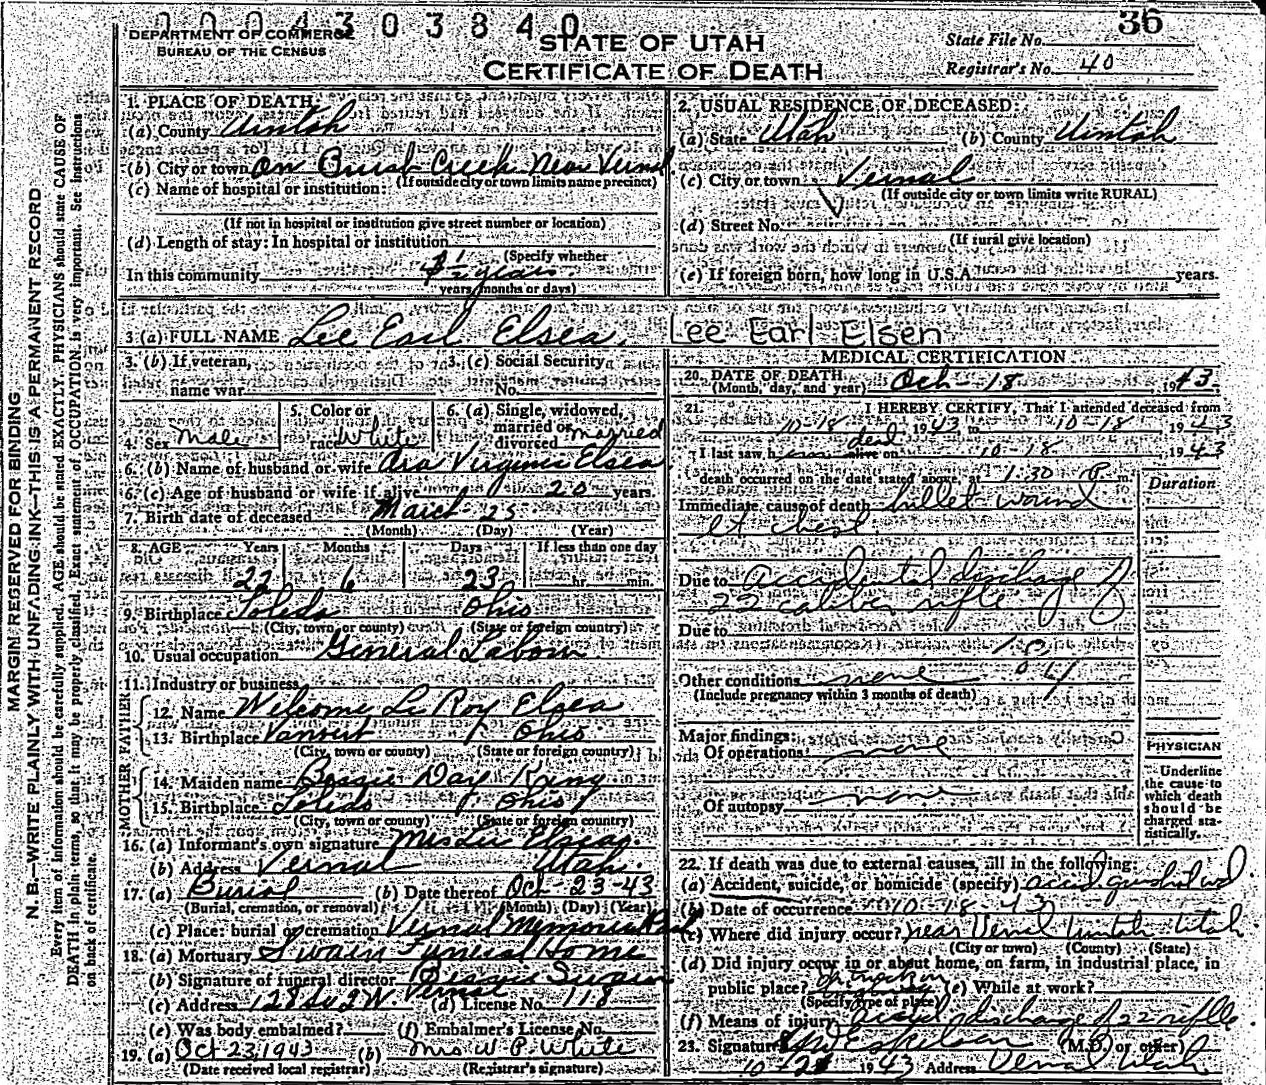 0 0 0 4 3 0 3 8 4 0
36
DEPARTMENT OF COMMERCE
BUREAU OF THE CENSUS
STATE OF UTAH
CERTIFICATE OF DEATH
State File No.
Registrar's No. 40
MARGIN RESERVED FOR BINDING
N. B.—WRITE PLAINLY WITH UNFADING INK—THIS IS A PERMANENT RECORD
Every item of information should be carefully supplied. AGE should be stated EXACTLY. PHYSICIANS should state CAUSE OF
DEATH in plain terms, so that it may be properly classified. Exact statement of OCCUPATION is very important. See instructions
on back of certificate.
1. PLACE OF DEATH:
(a) County Uintah
(b) City or town on Brush Creek Near Vernal
(If outside city or town limits name precinct)
(c) Name of hospital or institution:
(If not in hospital or institution give street number or location)
(d) Length of stay: In hospital or institution
(Specify whether
In this community 1/2 years
years, months or days)
2. USUAL RESIDENCE OF DECEASED:
(a) State Utah (b) County Uintah
(c) City or town Vernal
(If outside city or town limits write RURAL)
(d) Street No.
(If rural give location)
(e) If foreign born, how long in U.S.A. years.
3 (a) FULL NAME Lee Earl Elsea. Lee Earl Elsen
3. (b) If veteran, name war
3. (c) Social Security No.
4. Sex Male
5. Color or race White
6. (a) Single, widowed, married or divorced married
6. (b) Name of husband or wife Ora Virginia Elsea
6. (c) Age of husband or wife if alive 20 years.
7. Birth date of deceased March 25
(Month) (Day) (Year)
8. AGE Years Months Days If less than one day
22 6 23 hr. min.
9. Birthplace Toledo Ohio
(City, town, or county) (State or foreign country)
10. Usual occupation General Labour
11. Industry or business
FATHER
12. Name Welcome Le Roy Elsea
13. Birthplace Vanwert Ohio
(City, town or county) (State or foreign country)
MOTHER
14. Maiden name Bessie Day King
15. Birthplace Toledo Ohio
(City, town or county) (State or foreign country)
16. (a) Informant's own signature Mrs Lee Elsea.
(b) Address Vernal Utah.
17. (a) Burial (b) Date thereof Oct-23-43
(Burial, cremation, or removal) (Month) (Day) (Year)
(c) Place: burial or cremation Vernal Memorial Park
18. (a) Mortuary Swain Funeral Home
(b) Signature of funeral director Swain
(c) Address 128 So 2 W. Vernal (d) License No. 118
(e) Was body embalmed? (f) Embalmer's License No.
19. (a) Oct 23, 1943 (b) Mrs W P White
(Date received local registrar) (Registrar's signature)
MEDICAL CERTIFICATION
20. DATE OF DEATH
(Month, day, and year) Oct-18 1943.
21. I HEREBY CERTIFY, That I attended deceased from
10-18 1943 to 10-18 1943
I last saw him dead alive on 10-18- 1943
death occurred on the date stated above, at 1:30 P. m.
Duration
Immediate cause of death bullet wound
lt chest.
Due to accidental discharge of
22 caliber rifle
Due to
Other conditions none
(Include pregnancy within 3 months of death)
Major findings:
Of operations none
Of autopsy none
PHYSICIAN
Underline
the cause to
which death
should be
charged sta-
tistically.
22. If death was due to external causes, fill in the following:
(a) Accident, suicide, or homicide (specify) accid gunshot wd
(b) Date of occurrence 10-18-43
(c) Where did injury occur? near Vernal Uintah Utah
(City or town) (County) (State)
(d) Did injury occur in or about home, on farm, in industrial place, in
public place? (e) While at work?
(Specify type of place)
(f) Means of injury discharge of 22 rifle
23. Signature (M.D. or other)
1943 Address Vernal Utah